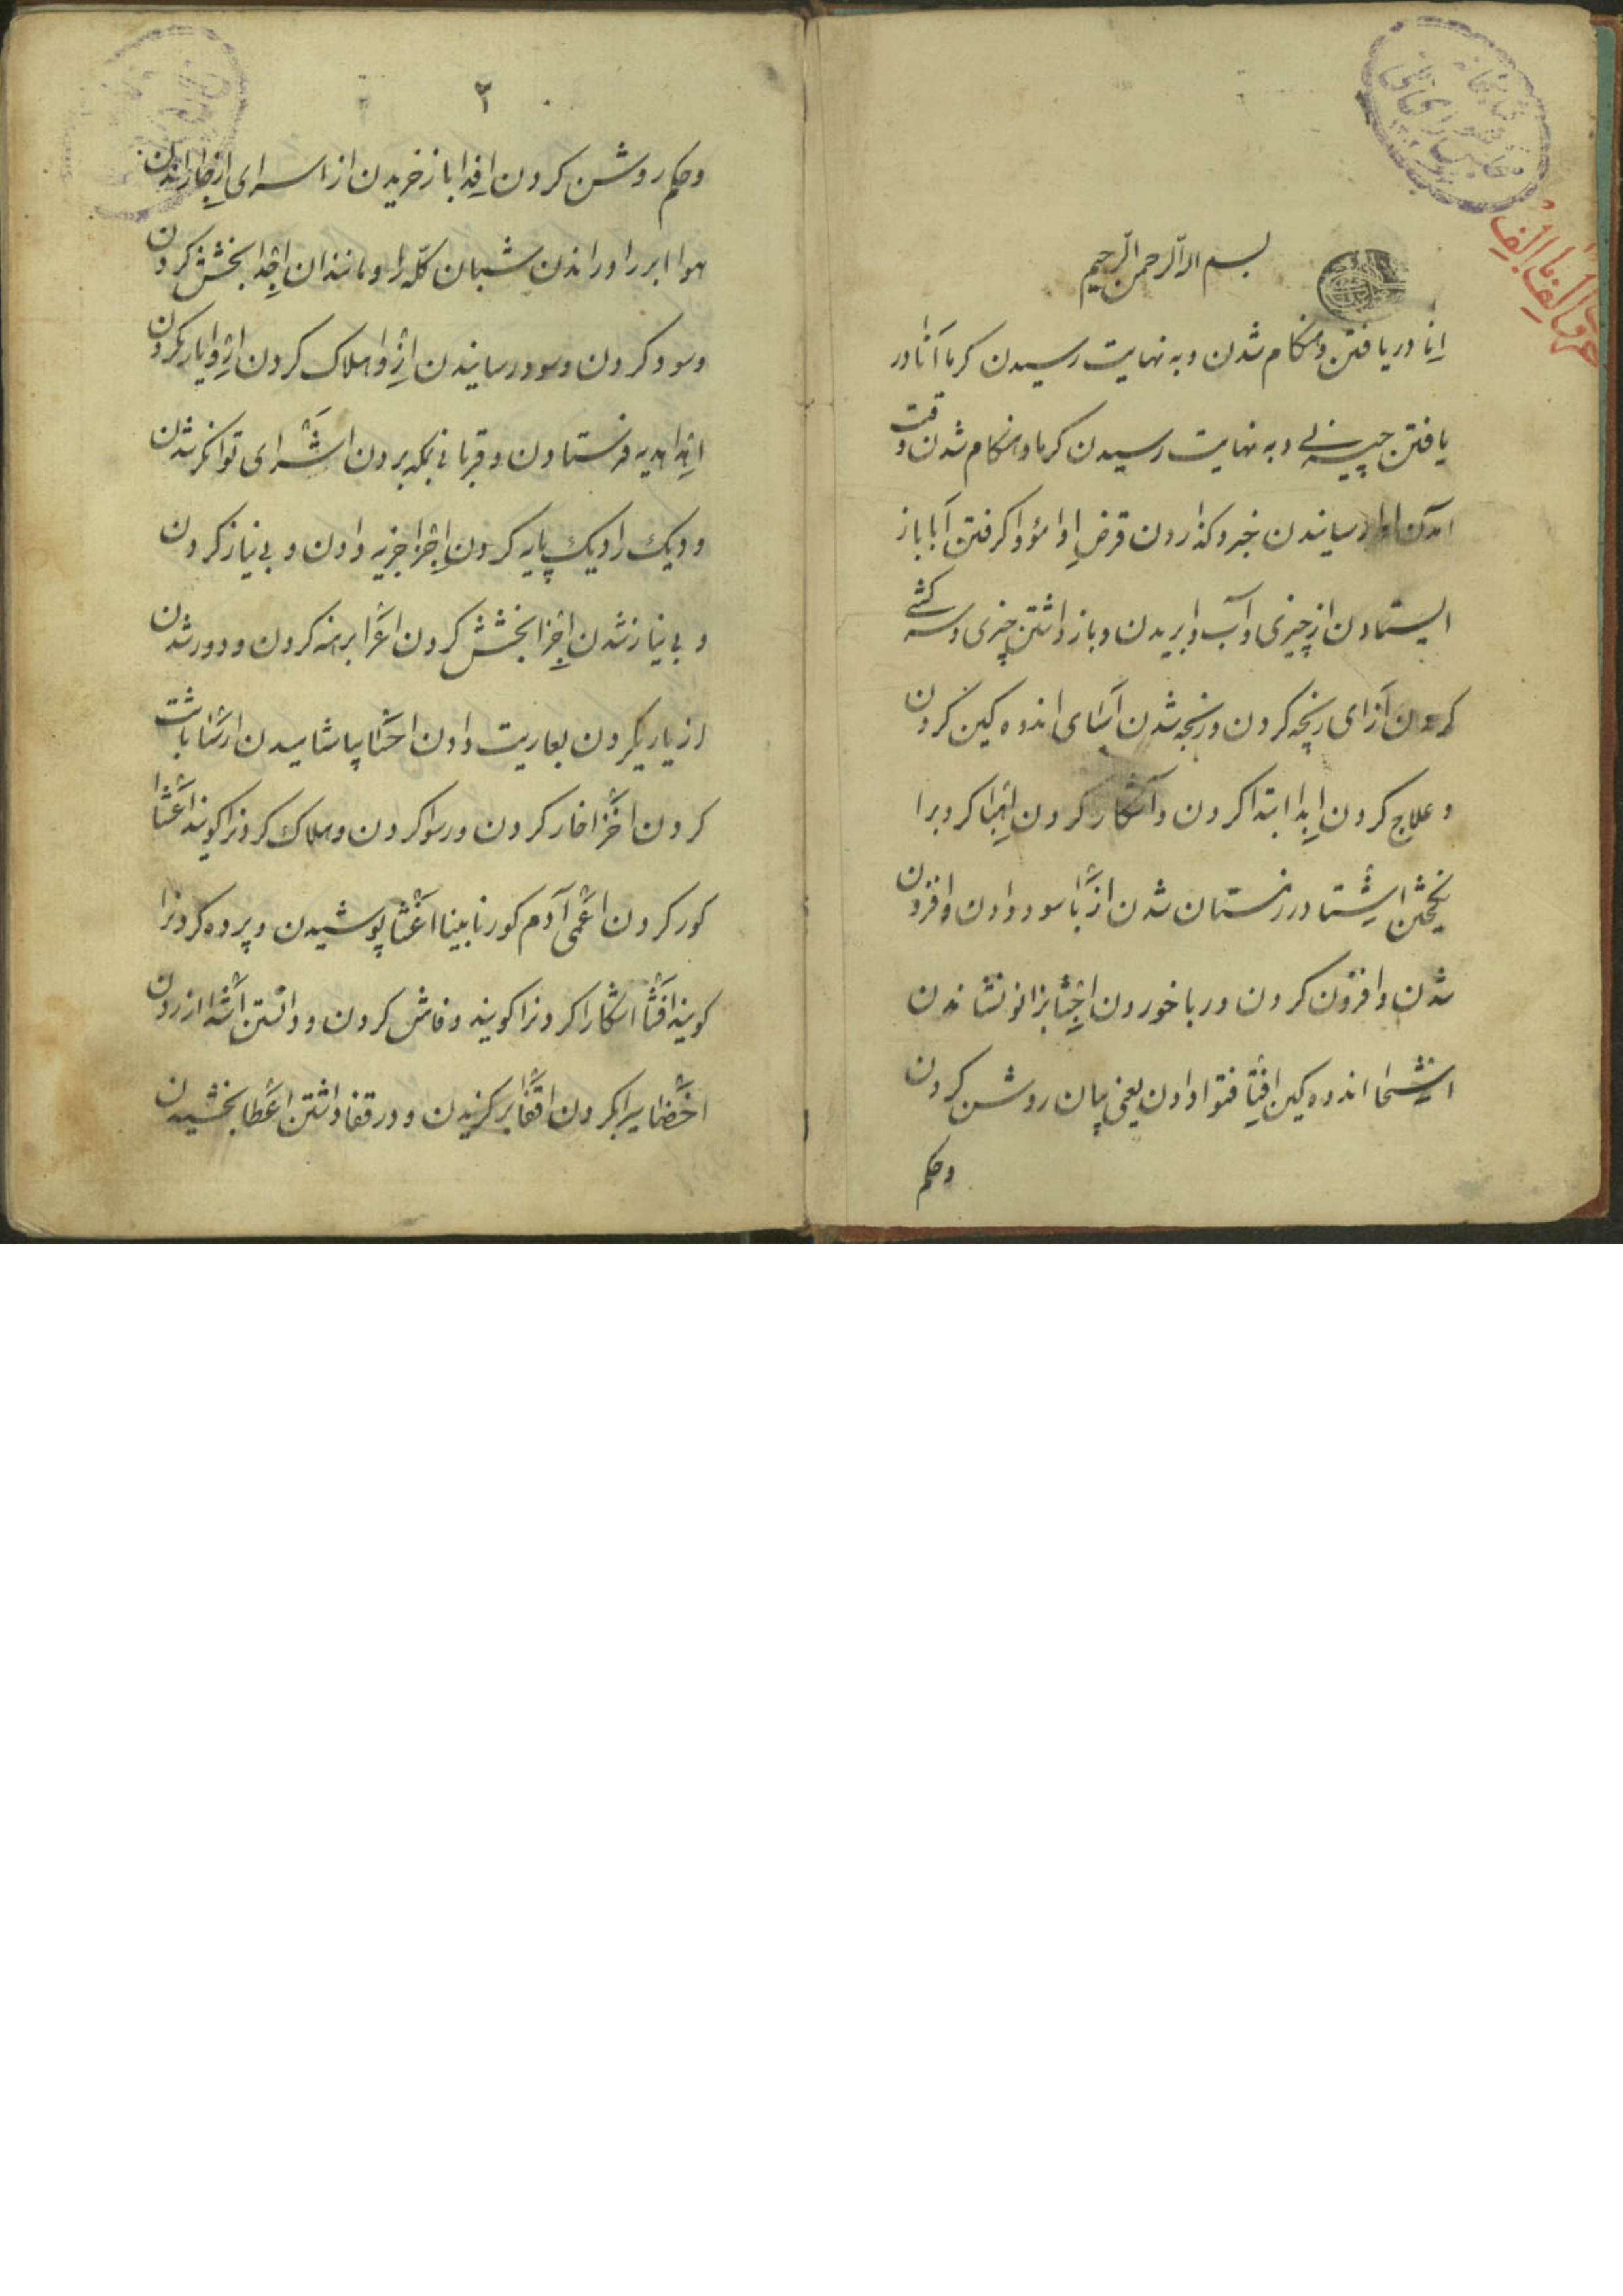 بسم الله الرحمن الرحیم
اِنا دریافتن و هنکام شدن و به نهایت رسیدن کرما اَنا در
یافتن چیزی و به نهایت رسیدن کرما و هنکام شدن وقت
امدن ادا رسانیدن خبر و کذاردن قرض اِدا مؤدا کرفتن اَبا باز
ایستادن از چیزی و آب وا بریدن و باز داشتن چیزی و سرکشے
کردن اَزای رنجه کردن و رنجه شدن اَسَای اندوه کین کردن
و علاج کردن اِبدا ابتدا کردن و آشکار کردن اِهبا کرد برا
نکیختن اِشتا در زمستان شدن ازبا سود دادن و افزون
شدن و افزون کردن و ربا خوردن اِجثا بزانو نشاندن
اشجا اندوه کین اِفتا فتوا دادن یعنی بیان روشن کردن
وحکم
۲
وحکم روشن کردن اِفدا باز خریدن از اسرای اِزجا راندن
هوا ابر را و راندن شبان کلّه را و مانند ان اِجدا بخشش کردن
و سود کردن و سود رسانیدن اِردا هلاک کردن اِردا یاریکردن
اِهدا هدیه فرستادن و قربانی بمکه بردن اثرای توانکر شدن
و دیک را دیک پایه کردن اِجزا جزیه دادن و بی نیاز کردن
و بی نیاز شدن اِجزا بخشش کردن اعرا برهنه کردن و دور شدن
از یاریکردن بعاریت دادن احسا بیاشامیدن ارسا باثبت
کردن اخزا خار کردن و رسوا کردن و هلاک کردنرا کویند اعشا
کور کردن اعمی آدم کور نابینا اغشا پوشیدن و پرده کردنرا
کویند افشا اشکارا کردنرا کویند و فاش کردن و دانستن
اقفا بر کزیدن و در قفا داشتن اعطا بخشیدن